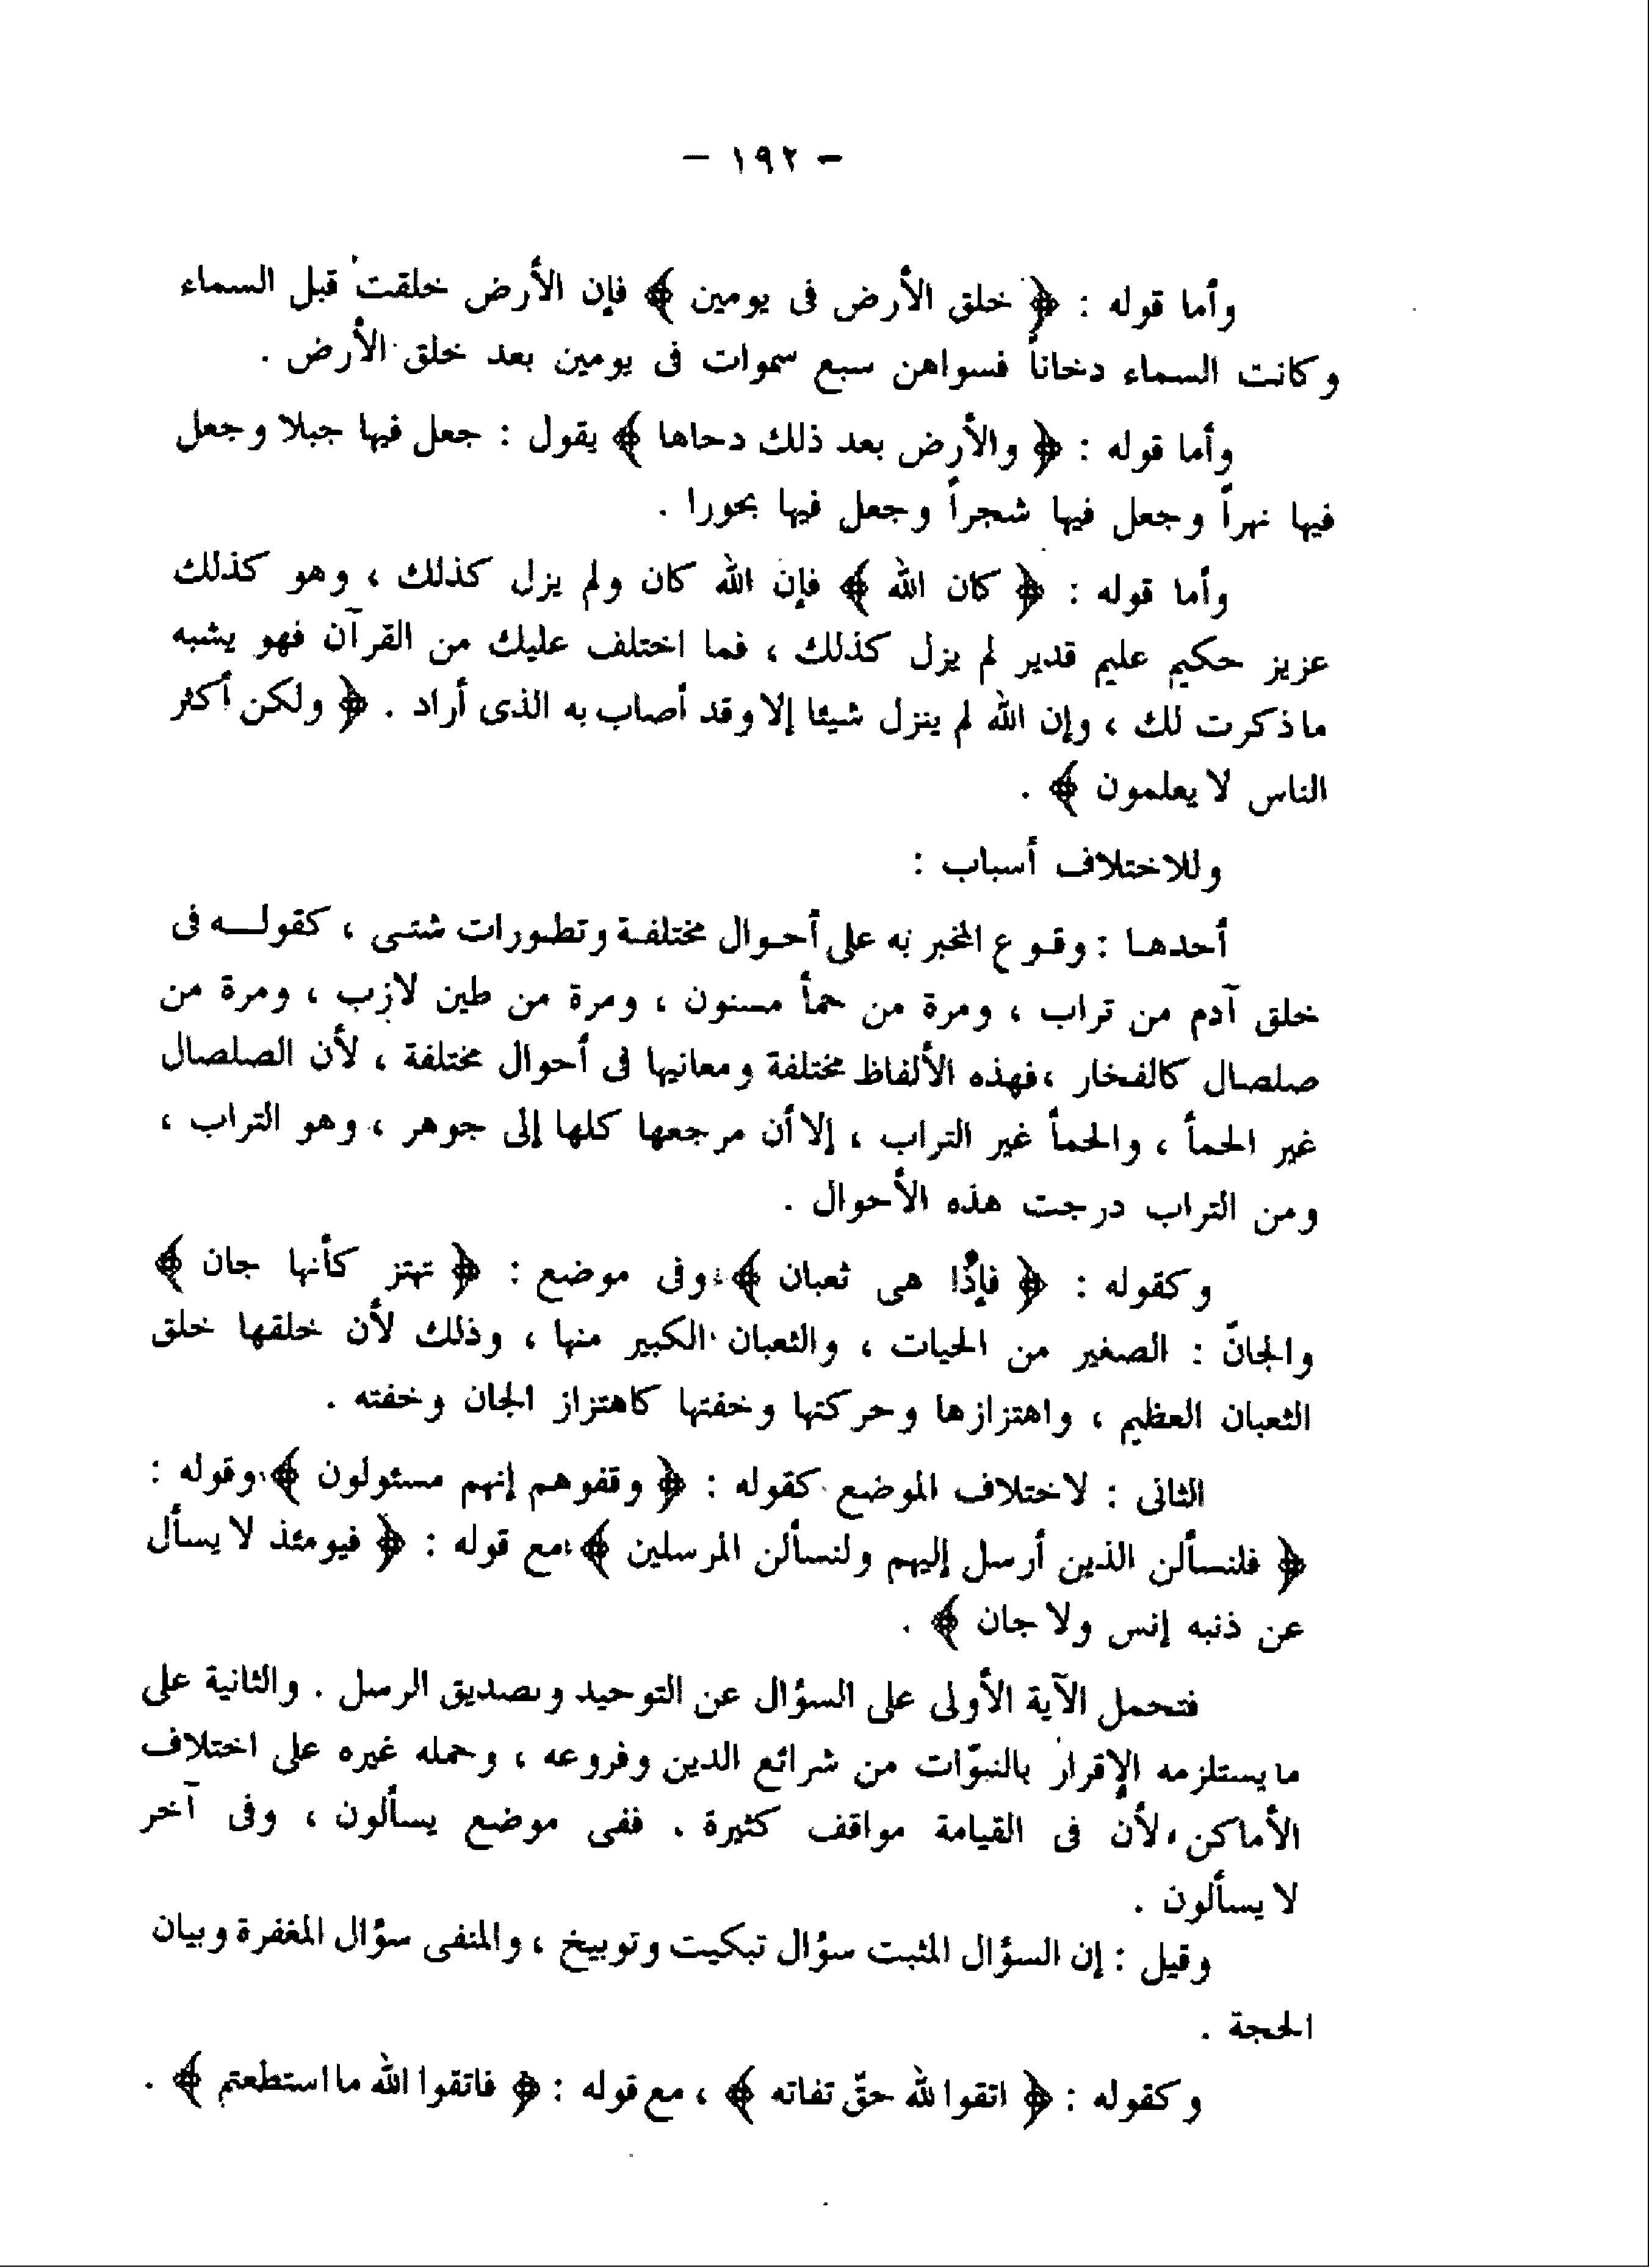 – ١٩٢ –
وأما قوله : ﴿ خلق الأرض فى يومين ﴾ فإن الأرض خلقت قبل السماء
وكانت السماء دخاناً فسواهن سبع سموات فى يومين بعد خلق الأرض .
وأما قوله : ﴿ والأرض بعد ذلك دحاها ﴾ يقول : جعل فيها جبلا وجعل
فيها نهراً وجعل فيها شجراً وجعل فيها بحورا .
وأما قوله : ﴿ كان الله ﴾ فإن الله كان ولم يزل كذلك ، وهو كذلك
عزيز حكيم عليم قدير لم يزل كذلك ، فما اختلف عليك من القرآن فهو يشبه
ما ذكرت لك ، وإن الله لم ينزل شيئا إلا وقد أصاب به الذى أراد . ﴿ ولكن أكثر
الناس لا يعلمون ﴾ .
وللاختلاف أسباب :
أحدهـا : وقـوع المخبر به على أحـوال مختلفـة وتطـورات شتـى ، كقولـــه فى
خلق آدم من تراب ، ومرة من حمأ مسنون ، ومرة من طين لازب ، ومرة من
صلصال كالفخار ، فهذه الألفاظ مختلفة ومعانيها فى أحوال مختلفة ، لأن الصلصال
غير الحمأ ، والحمأ غير التراب ، إلا أن مرجعها كلها إلى جوهر ، وهو التراب ،
ومن التراب درجت هذه الأحوال .
وكقوله : ﴿ فإذا هى ثعبان ﴾ ، وفى موضع : ﴿ تهتز كأنها جان ﴾
والجانّ : الصغير من الحيات ، والثعبان الكبير منها ، وذلك لأن خلقها خلق
الثعبان العظيم ، واهتزازها وحركتها وخفتها كاهتزاز الجان وخفته .
الثانى : لاختلاف الموضع كقوله : ﴿ وقفوهم إنهم مسئولون ﴾ ، وقوله :
﴿ فلنسألن الذين أرسل إليهم ولنسألن المرسلين ﴾ ، مع قوله : ﴿ فيومئذ لا يسأل
عن ذنبه إنس ولا جان ﴾ .
فتحمل الآية الأولى على السؤال عن التوحيد وتصديق الرسل . والثانية على
ما يستلزمه الإقرار بالنبوّات من شرائع الدين وفروعه ، وحمله غيره على اختلاف
الأماكن ، لأن فى القيامة مواقف كثيرة . ففى موضع يسألون ، وفى آخر
لا يسألون .
وقيل : إن السؤال المثبت سؤال تبكيت وتوبيخ ، والمنفى سؤال المغفرة وبيان
الحجة .
وكقوله : ﴿ اتقوا لله حقّ تقاته ﴾ ، مع قوله : ﴿ فاتقوا الله ما استطعتم ﴾ .